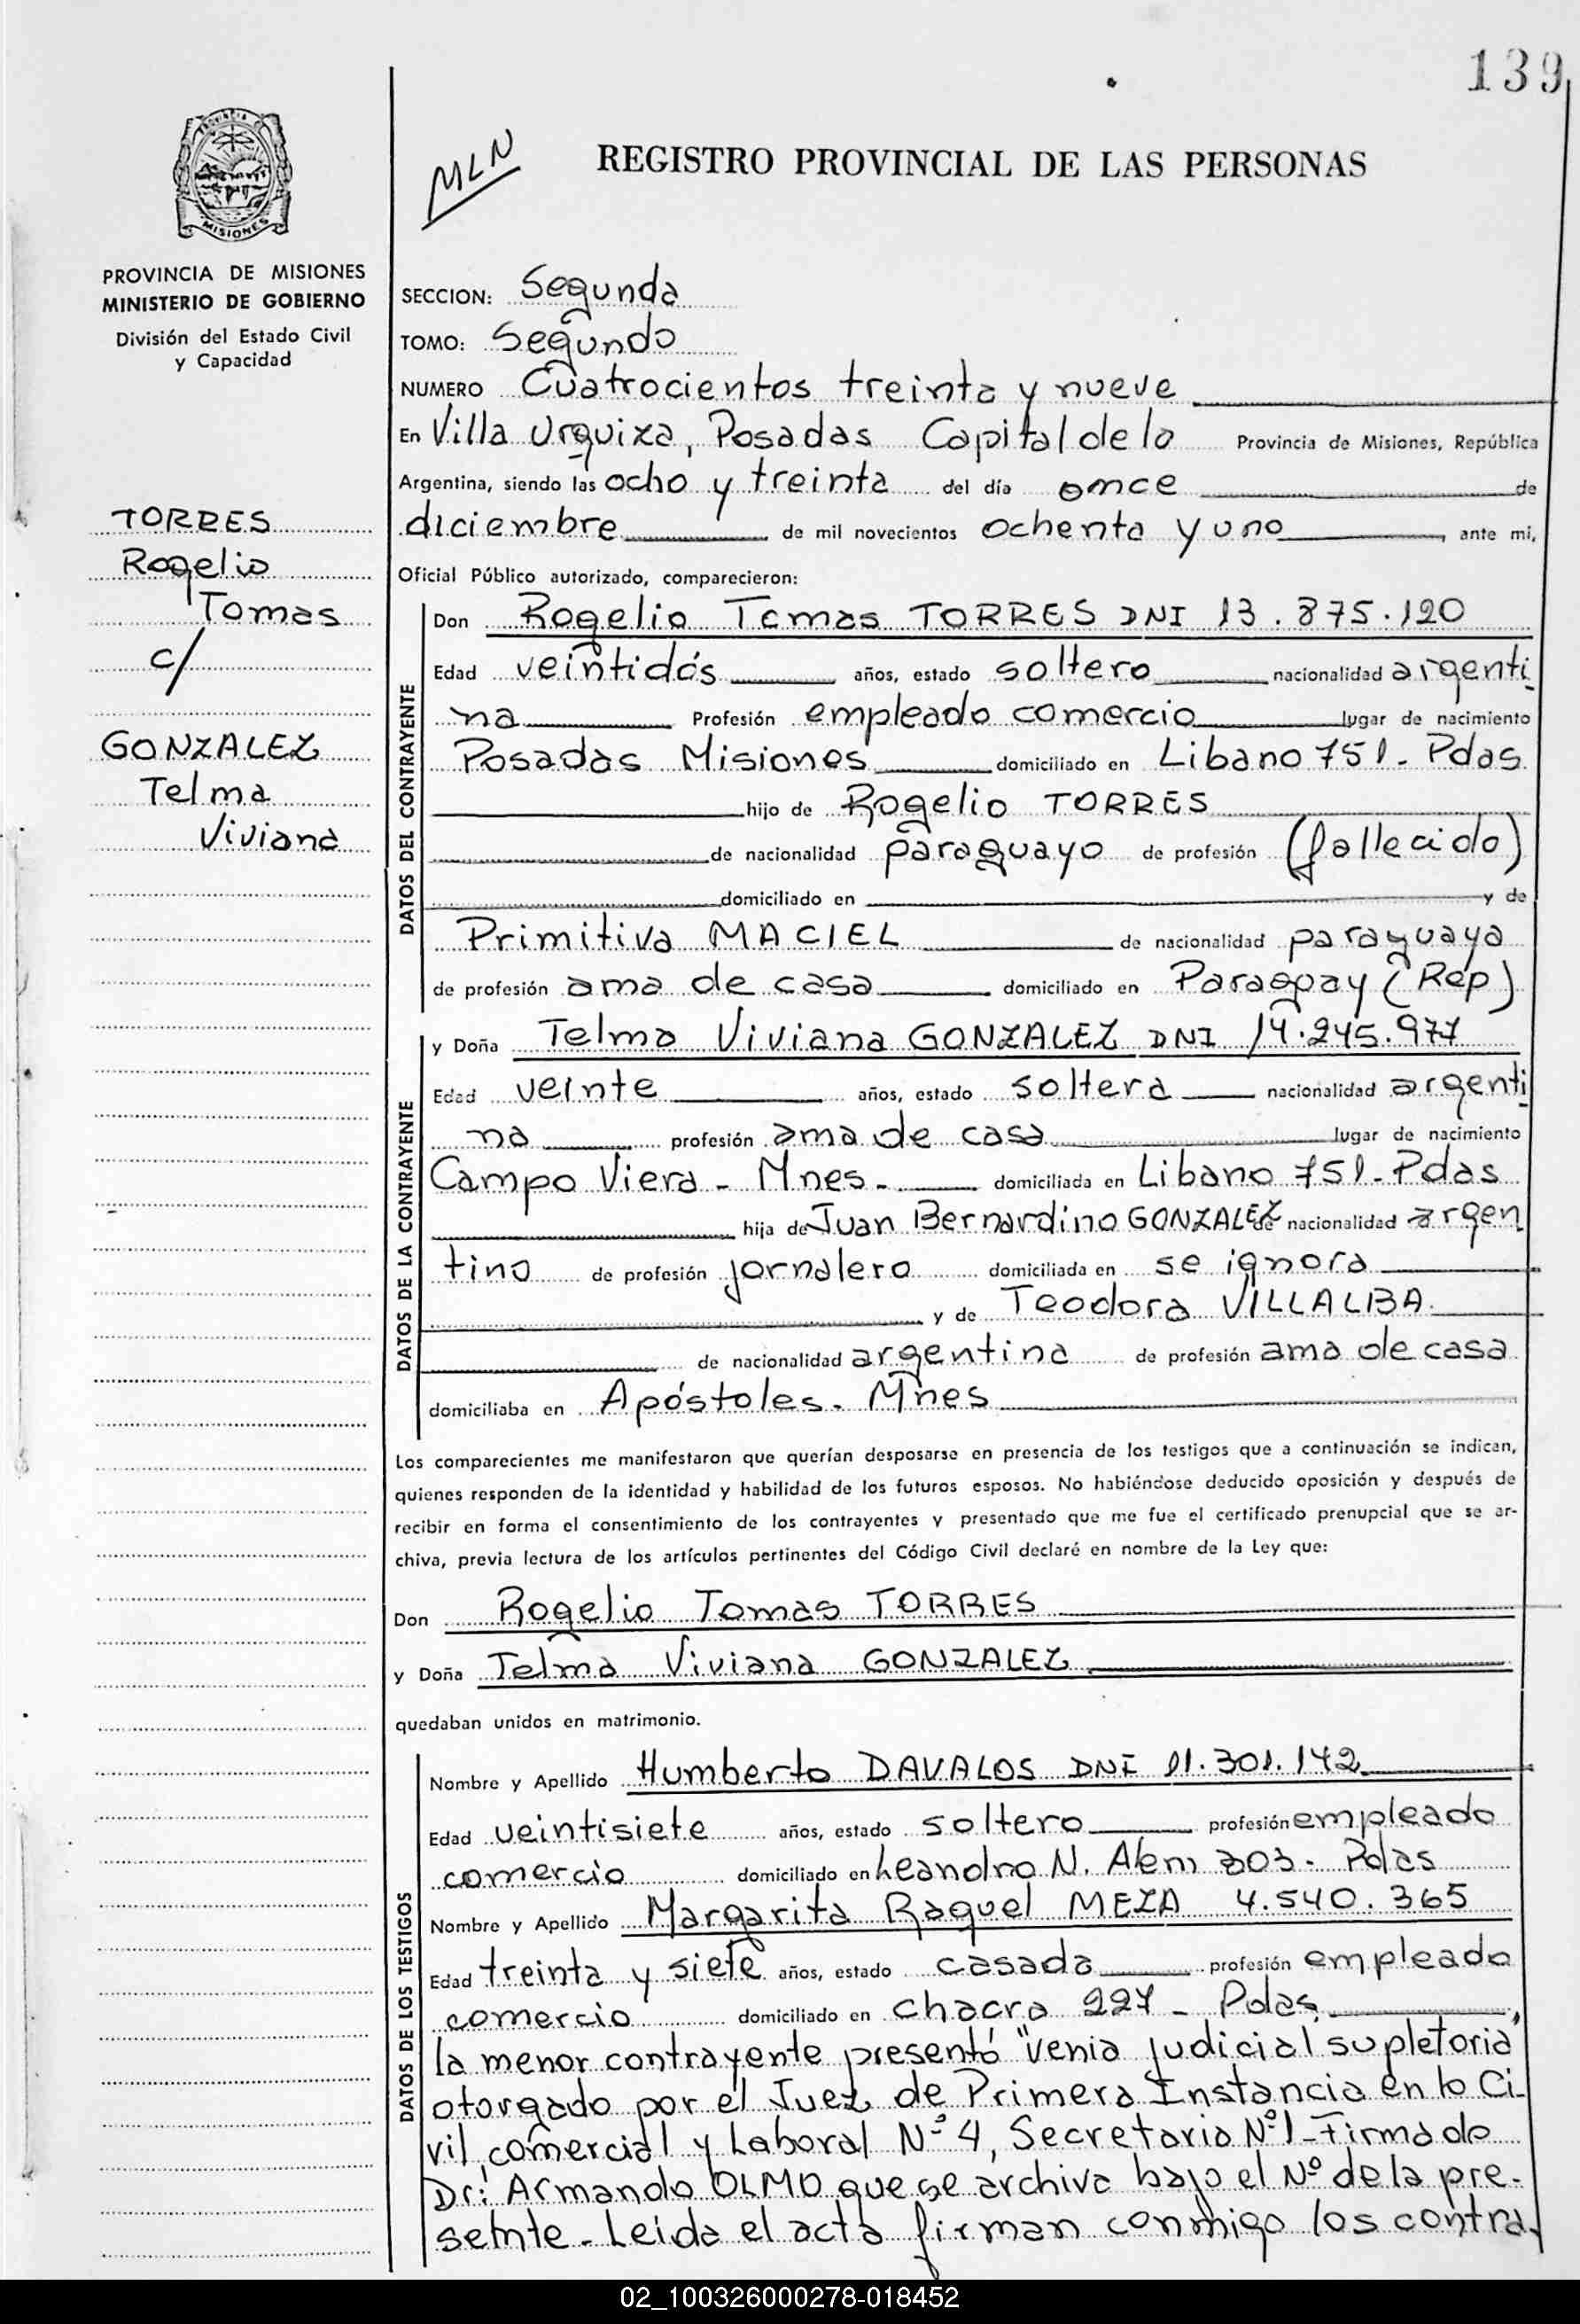 139
MLN
REGISTRO PROVINCIAL DE LAS PERSONAS
PROVINCIA DE MISIONES
MISIONES
PROVINCIA DE MISIONES
MINISTERIO DE GOBIERNO
División del Estado Civil
y Capacidad
TORRES
Rogelio
Tomas
c/
GONZALEZ
Telma
Viviana
SECCION: Segunda
TOMO: Segundo
NUMERO Cuatrocientos treinta y nueve
En Villa Urquiza, Posadas Capital de la Provincia de Misiones, República
Argentina, siendo las ocho y treinta del día once de
diciembre de mil novecientos ochenta y uno ante mi,
Oficial Público autorizado, comparecieron:
DATOS DEL CONTRAYENTE
Don Rogelio Tomas TORRES DNI 13.875.120
Edad veintidós años, estado soltero nacionalidad argenti
na Profesión empleado comercio lugar de nacimiento
Posadas Misiones domiciliado en Libano 751- Pdas
hijo de Rogelio TORRES
de nacionalidad paraguayo de profesión (fallecido)
domiciliado en y de
Primitiva MACIEL de nacionalidad paraguaya
de profesión ama de casa domiciliado en Paraguay (Rep)
DATOS DE LA CONTRAYENTE
y Doña Telma Viviana GONZALEZ DNI 14.245.977
Edad veinte años, estado soltera nacionalidad argenti
na profesión ama de casa lugar de nacimiento
Campo Viera - Mnes- domiciliada en Libano 751- Pdas
hija de Juan Bernardino GONZALEZ de nacionalidad argen
tino de profesión jornalero domiciliada en se ignora
y de Teodora VILLALBA
de nacionalidad argentina de profesión ama de casa
domiciliaba en Apóstoles- Mnes
Los comparecientes me manifestaron que querían desposarse en presencia de los testigos que a continuación se indican,
quienes responden de la identidad y habilidad de los futuros esposos. No habiéndose deducido oposición y después de
recibir en forma el consentimiento de los contrayentes y presentado que me fue el certificado prenupcial que se ar-
chiva, previa lectura de los artículos pertinentes del Código Civil declaré en nombre de la Ley que:
Don Rogelio Tomas TORRES
y Doña Telma Viviana GONZALEZ
quedaban unidos en matrimonio.
DATOS DE LOS TESTIGOS
Nombre y Apellido Humberto DAVALOS DNI 11.301.142
Edad veintisiete años, estado soltero profesión empleado
comercio domiciliado en Leandro N. Alem 303- Pdas
Nombre y Apellido Margarita Raquel MEZA 4.540.365
Edad treinta y siete años, estado casada profesión empleado
comercio domiciliado en chacra 227- Pdas,
la menor contrayente presentó "venia judicial supletoria"
otorgado por el Juez de Primera Instancia en lo Ci-
vil, comercial y Laboral Nº 4, Secretaria Nº 1-Firmado
Dr: Armando OLMO que se archiva bajo el Nº de la pre-
setnte- Leida el acta firman conmigo los contra-
02_100326000278-018452